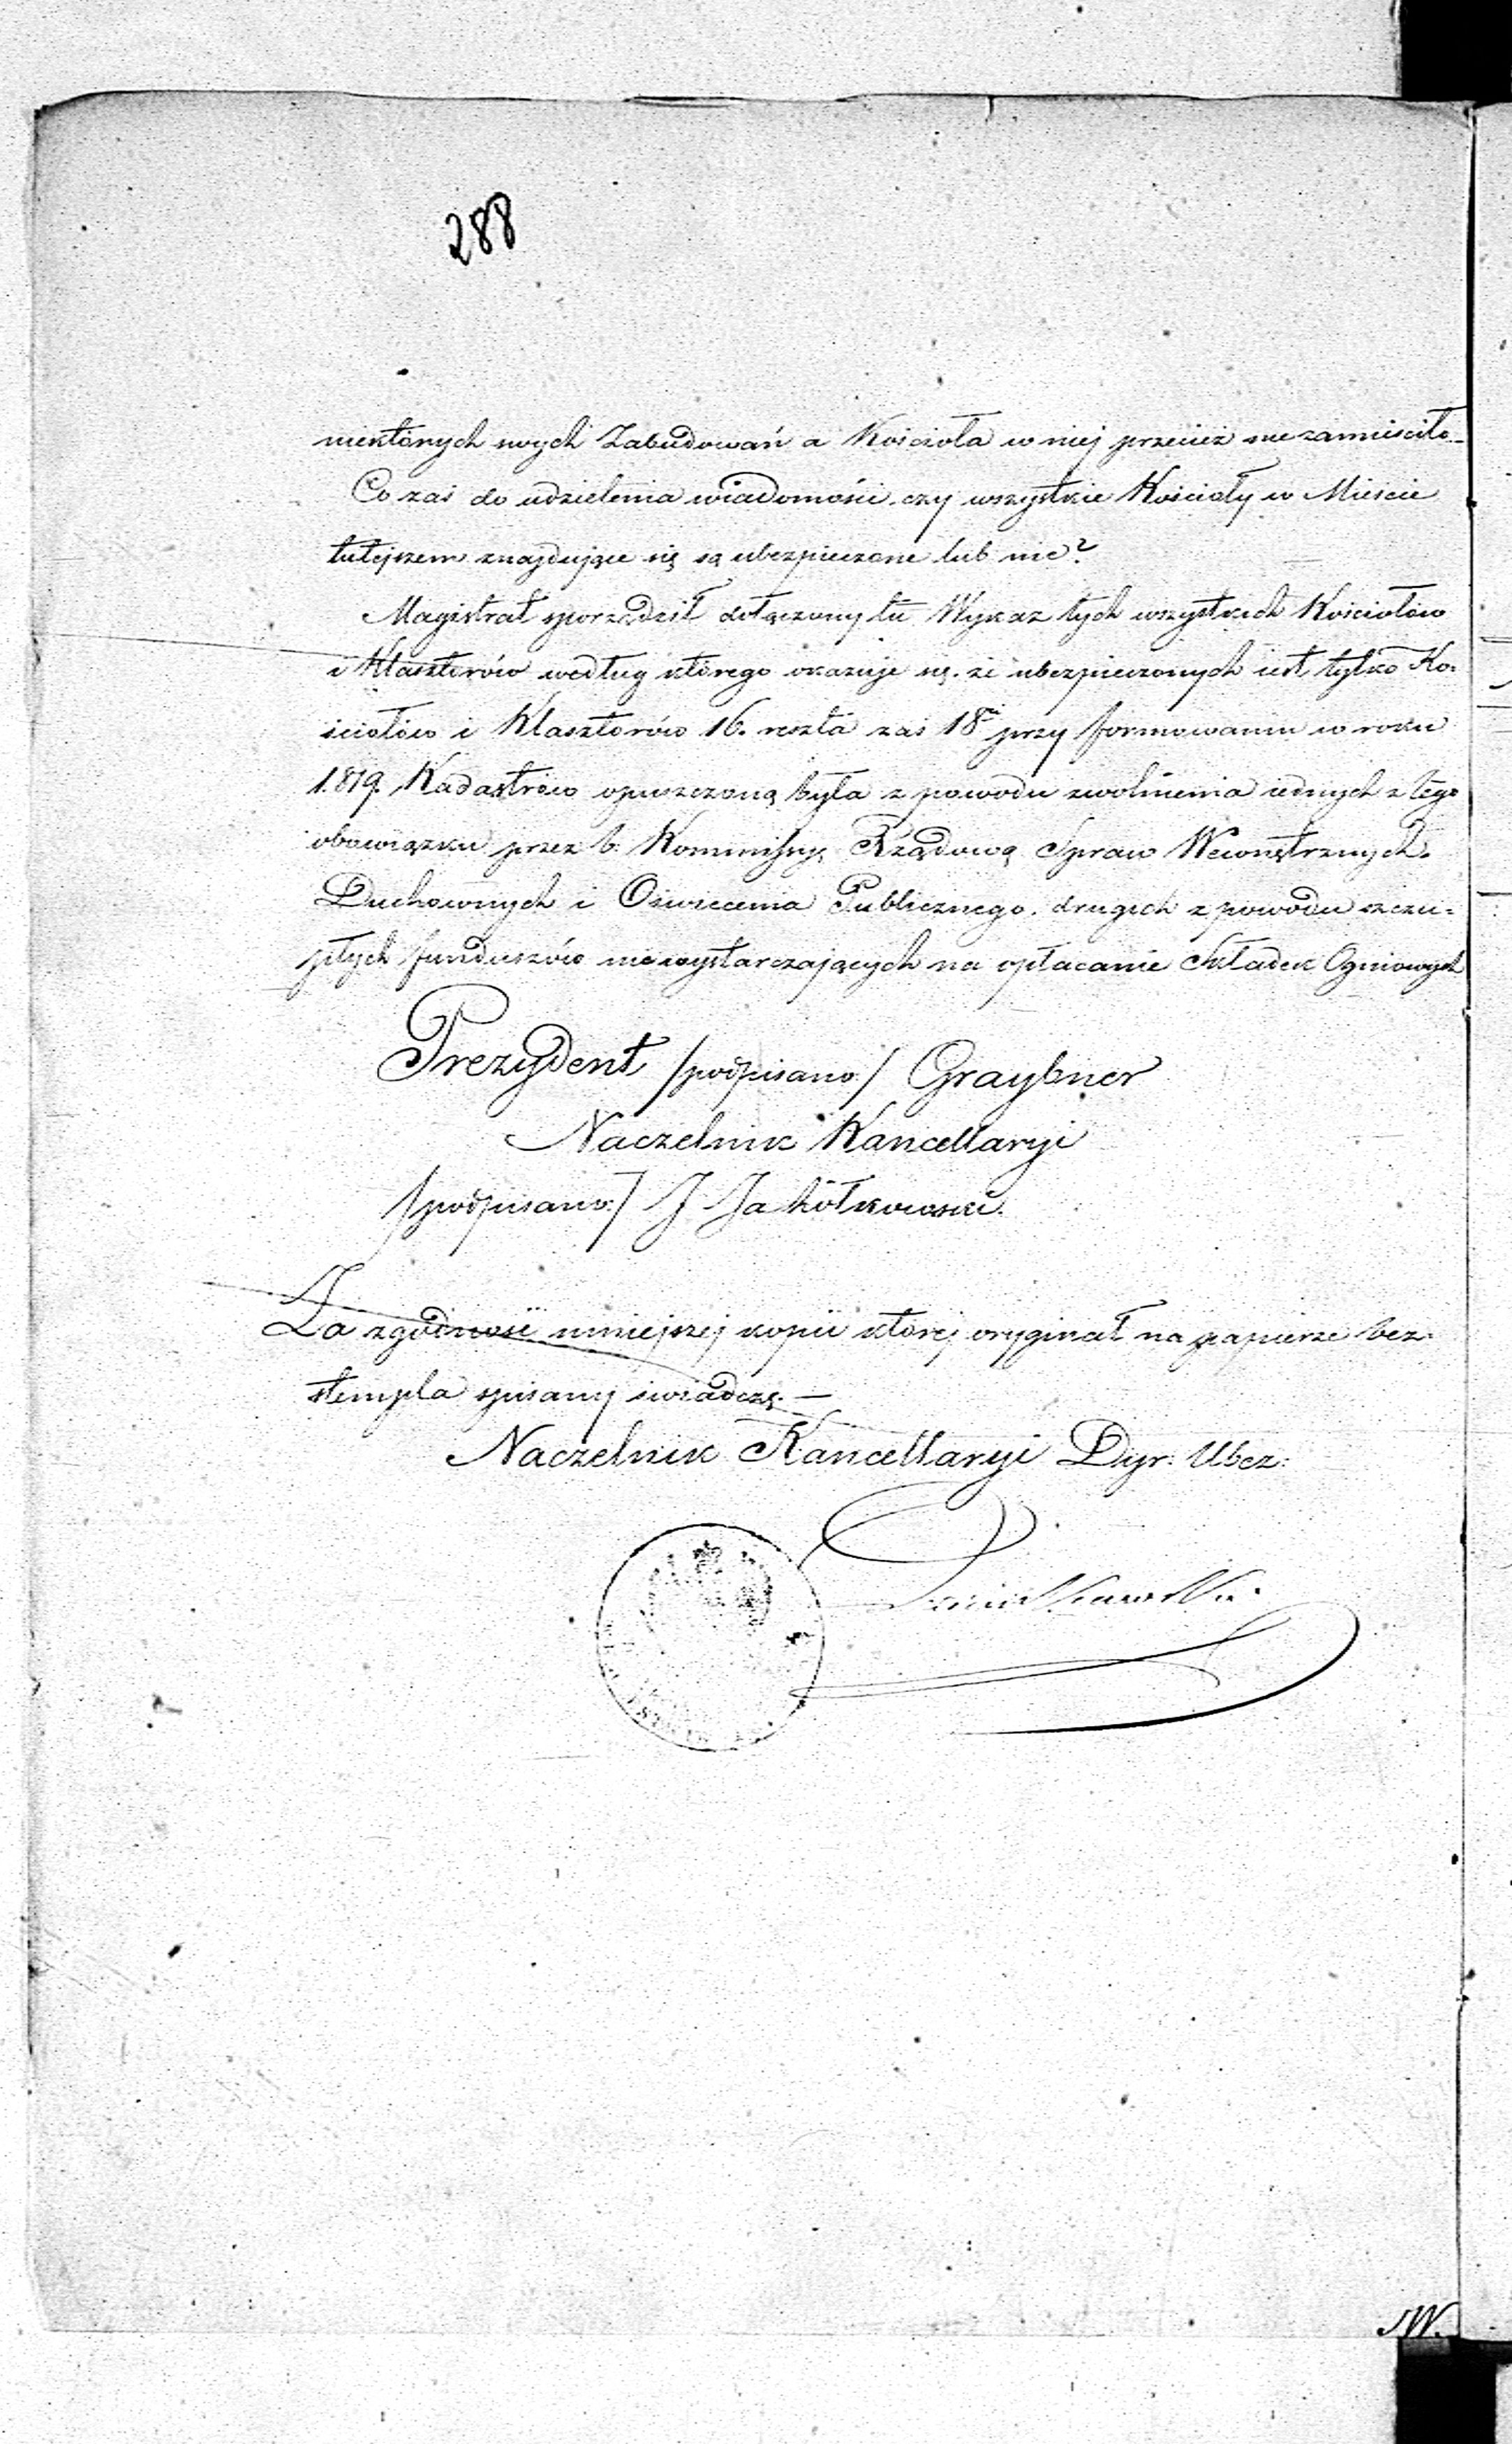 288
niektórych swych Zabudowań a Kościoła w niej przecież nie zamieściło_
Co zaś do udzielenia wiadomości czy wszystkie Kościoły w Mieście
tutejszem znajdujące się są ubezpieczone lub nie?
Magistrat sporządził dołączony tu Wykaz tych wszystkich Kościołów
i Klasztorów według którego okazuje się, że ubezpieczonych jest tylko Ko-
ściołów i Klasztorów 16. reszta zaś 18 przy formowaniu w roku
1819. Kadastrów opuszczoną była z powodu zwolnienia iednych z tego
obowiązku przez b. Kommissyę Rządową Spraw Wewnętrznych
Duchownych i Oświecenia Publicznego, drugich z powodu szczu-
płych funduszów niewystarczających na opłacanie Składek Ogniowych
Prezydent /podpisano/ Graybner
Naczelnik Kancellaryi
/podpisano:/ J Jakółkowski.
Za zgodność niniejszej kopii której oryginał na papierze bez
stempla spisany świadczę. —
Naczelnik Kancellaryi Dyr: Ubez:
JW.